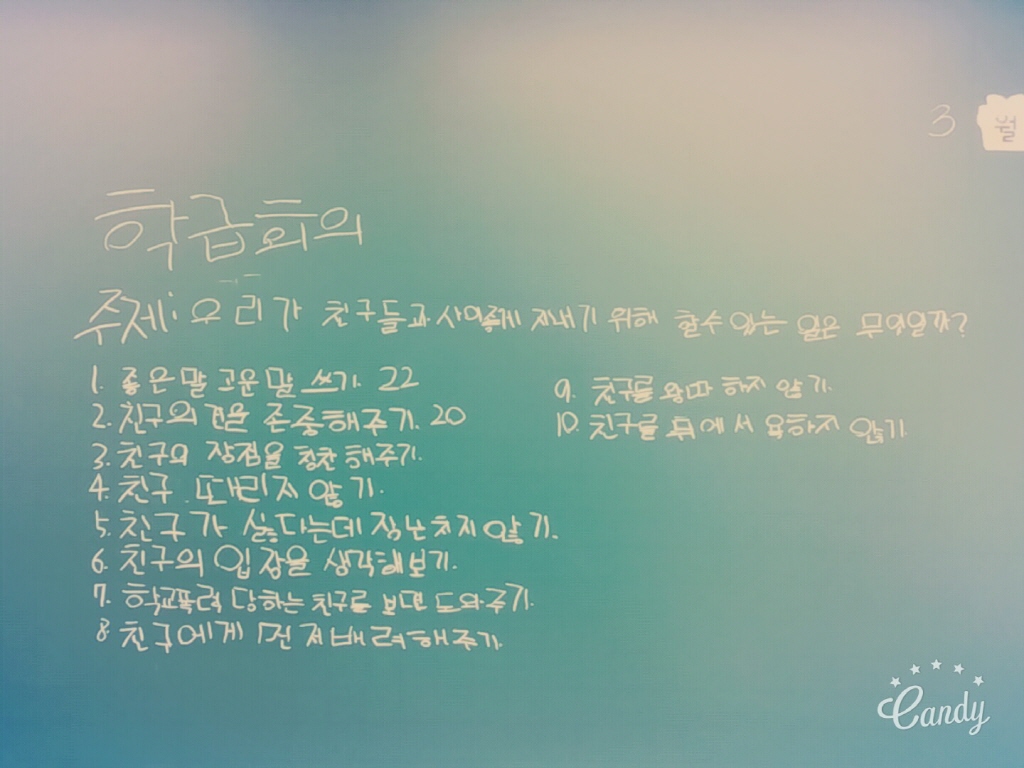 3 월
학급회의
주제: 우리가 친구들과 사이좋게 지내기 위해 할 수 있는 일은 무엇일까?
1. 좋은말 고운말 쓰기. 22
2. 친구의견을 존중해주기. 20
3. 친구의 장점을 칭찬해주기.
4. 친구 때리지 않기.
5. 친구가 싫다는데 장난치지 않기.
6. 친구의 입장을 생각해보기.
7. 학교폭력 당하는 친구를 보면 도와주기.
8 친구에게 먼저 배려해주기.
9. 친구를 왕따 하지 않기.
10. 친구를 뒤에서 욕하지 않기.
Candy